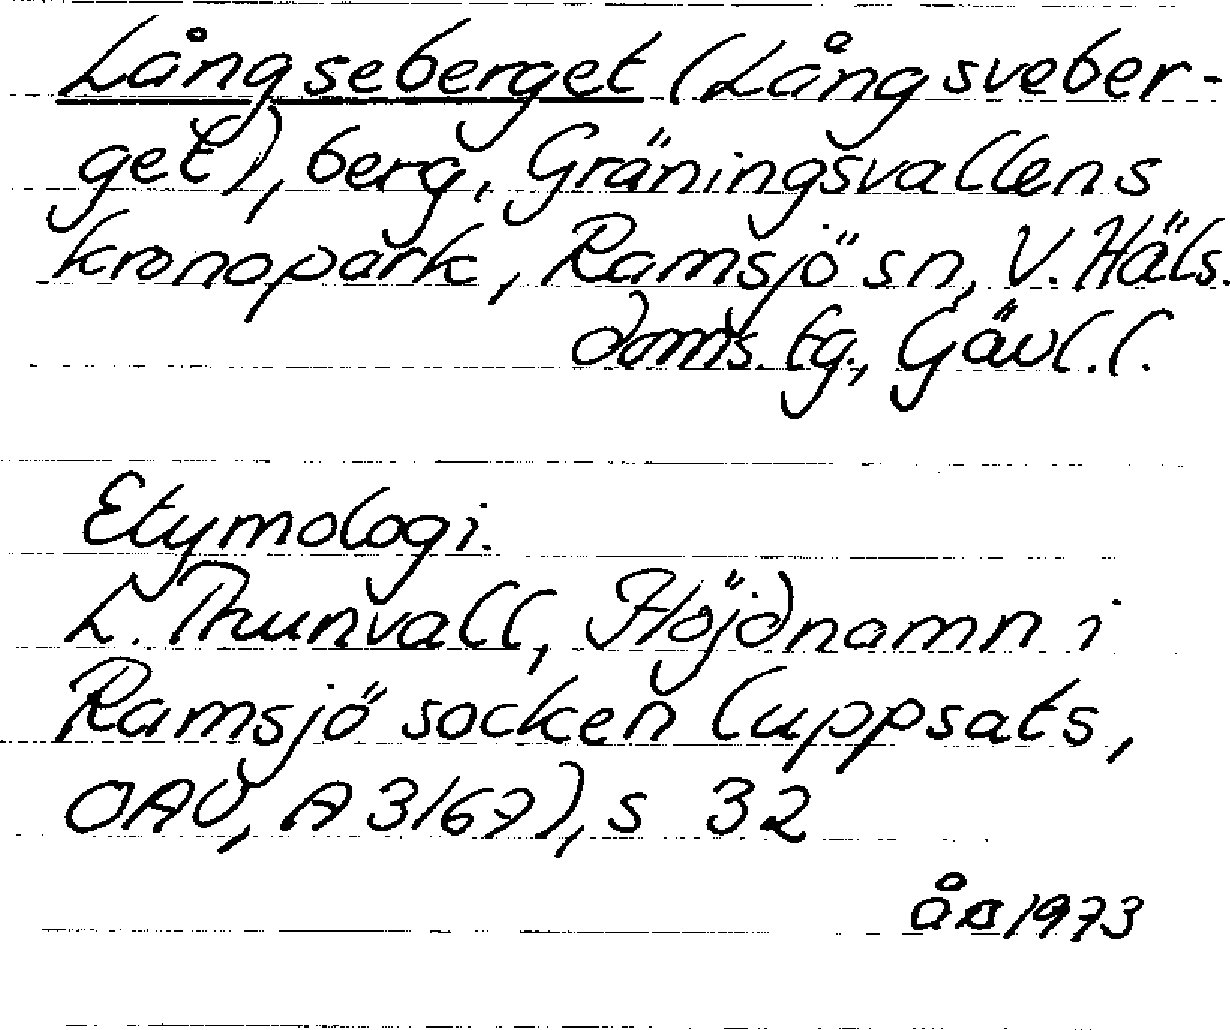 Långseberget (Långsveber-
get), berg, Gräningsvallens
kronopark, Ramsjö sn, V. Häls.
doms. tg., Gävl. l.
Etymologi.
L. Thunvall, Höjdnamn i
Ramsjö socken (uppsats,
OAU, A 3167), s 32
1973